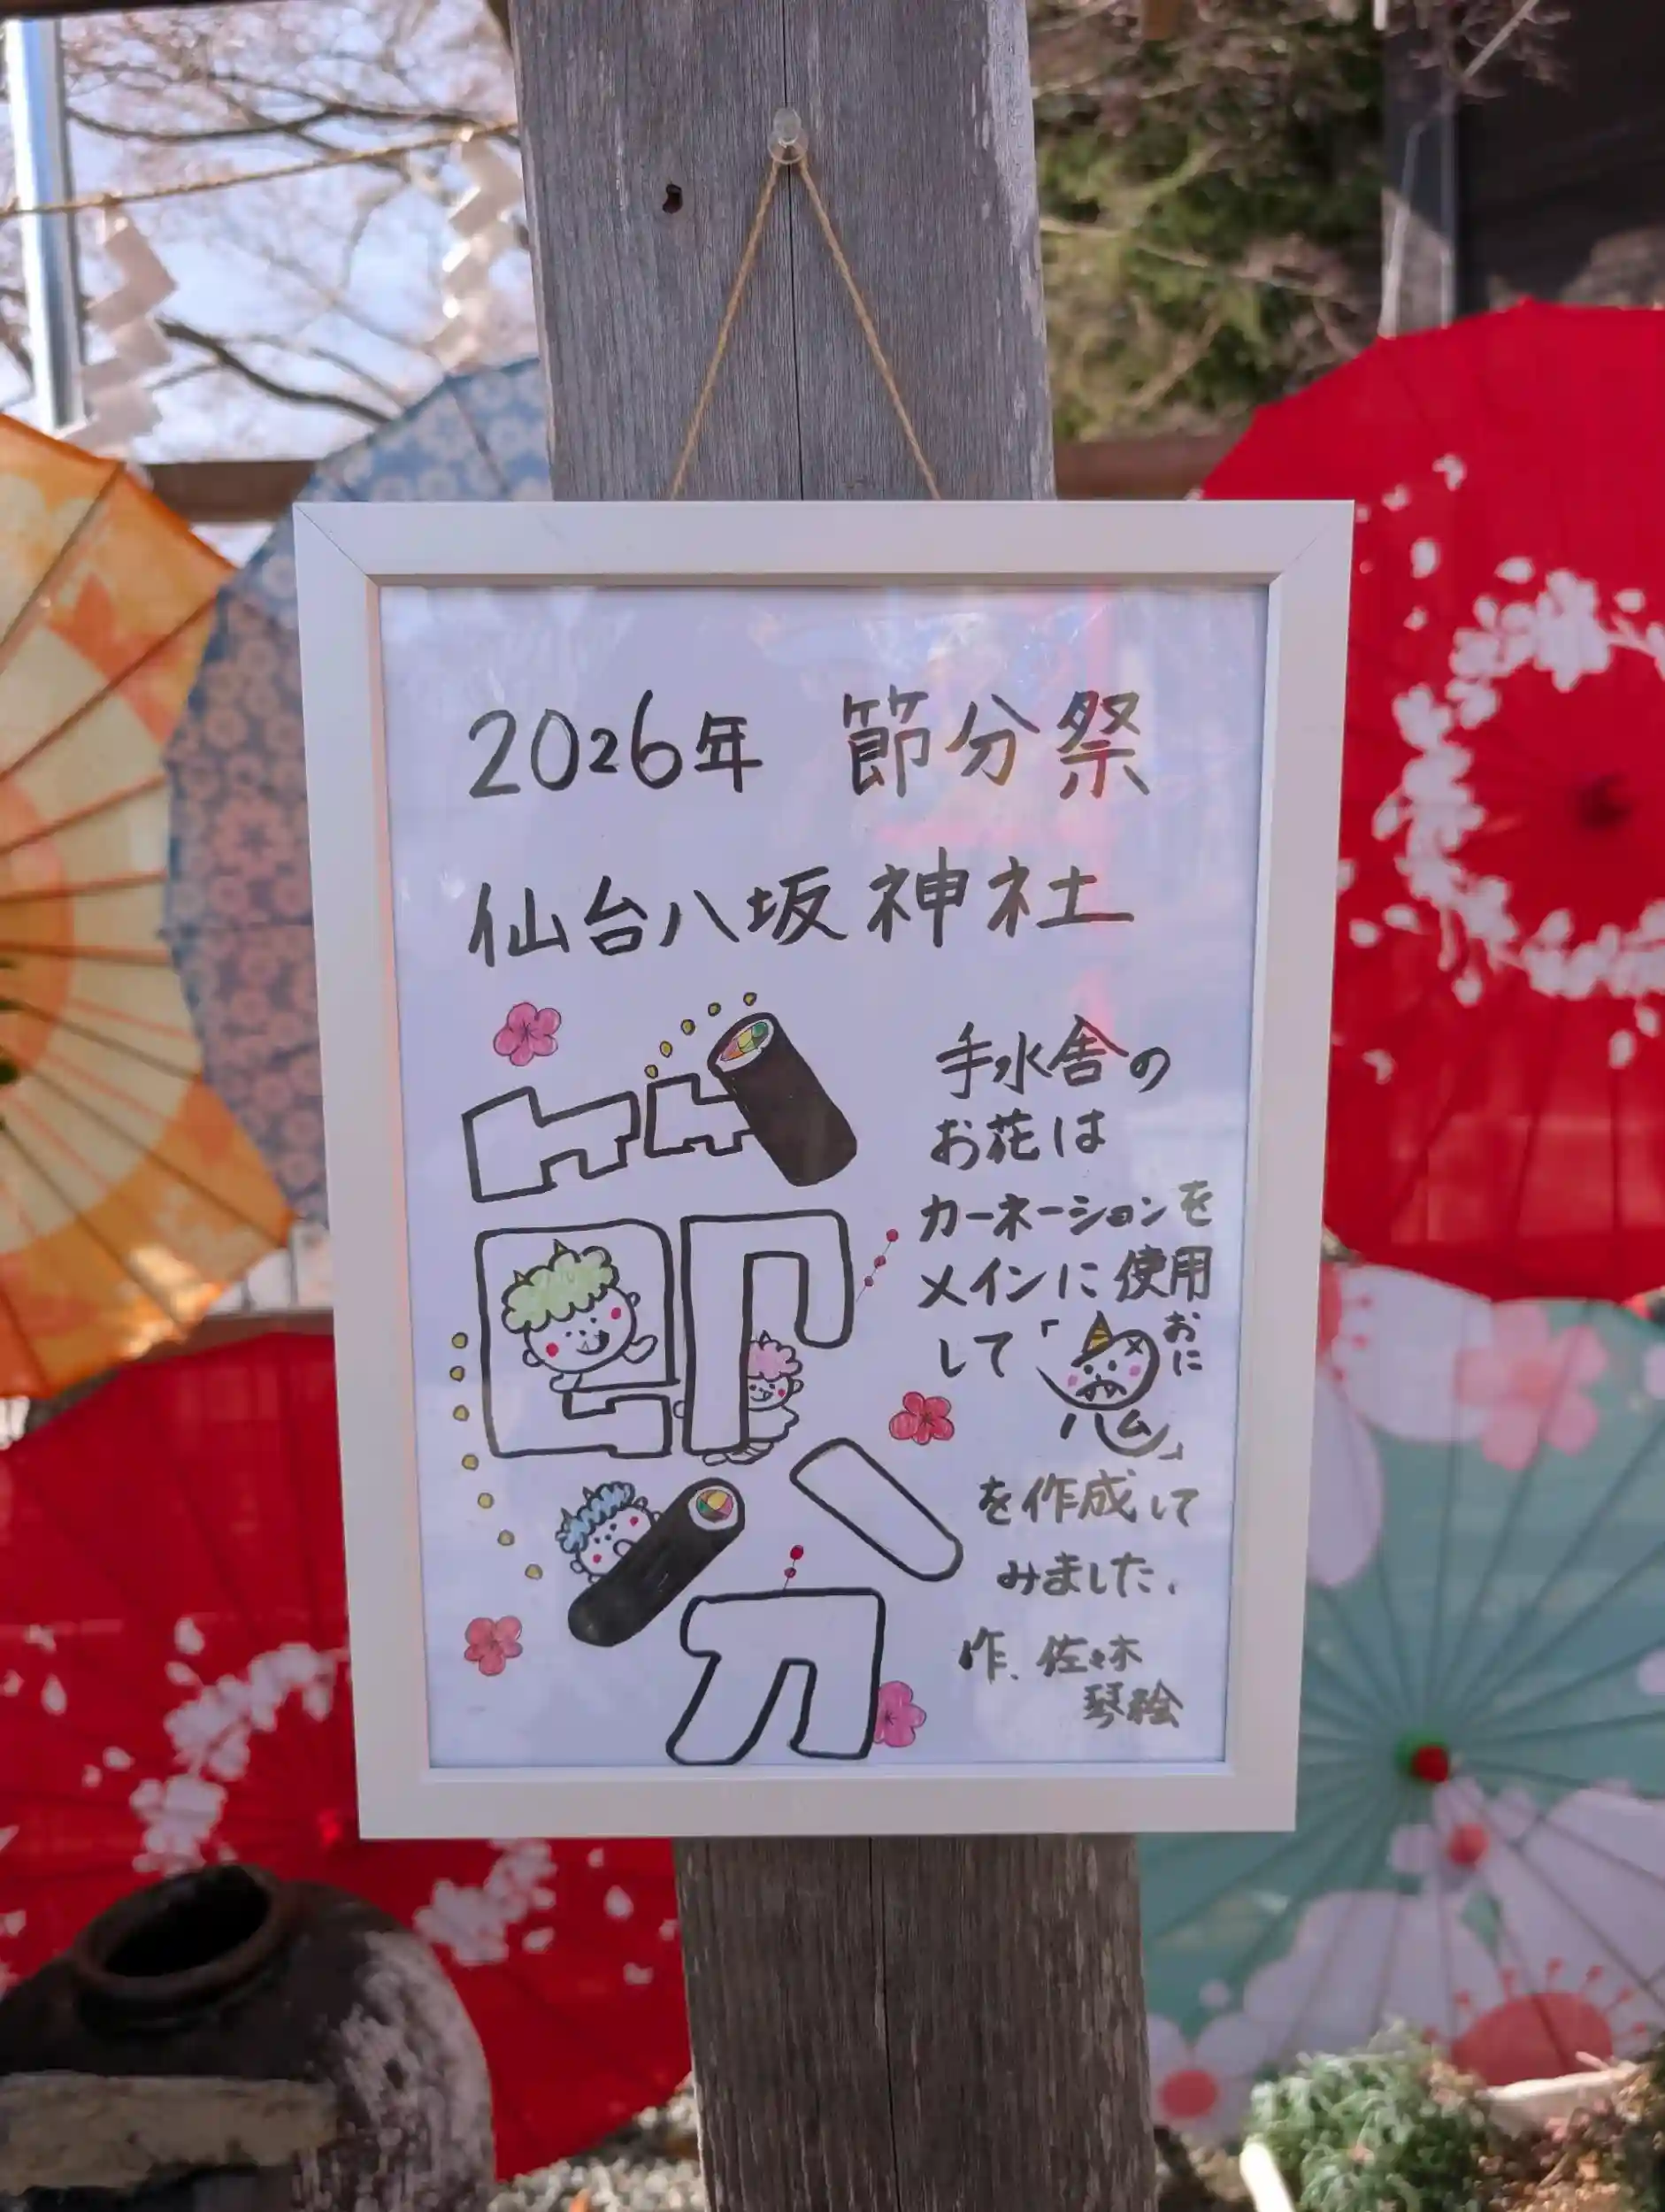 2026年 節分祭
仙台八坂神社
節分
手水舎の
お花は
カーネーションを
メインに使用
して「おに
ハム」
を作成して
みました。
作、佐々木
琴絵